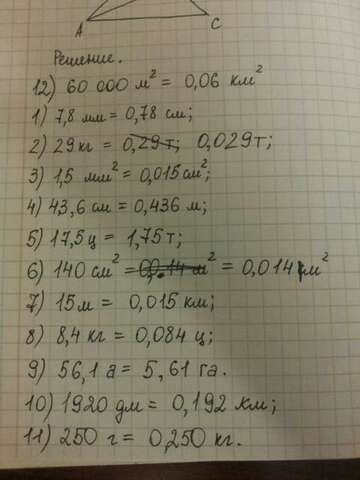 A C
Решение.
12) 60 000 м² = 0,06 км²
1) 7,8 мм = 0,78 см;
2) 29 кг = 0,29 т; 0,029 т;
3) 1,5 мм² = 0,015 см²;
4) 43,6 см = 0,436 м;
5) 17,5 ц = 1,75 т;
6) 140 см² = 00,14 м² = 0,014 м²
7) 15 м = 0,015 км;
8) 8,4 кг = 0,084 ц;
9) 56,1 а = 5,61 га.
10) 1920 дм = 0,192 км;
11) 250 г = 0,250 кг.